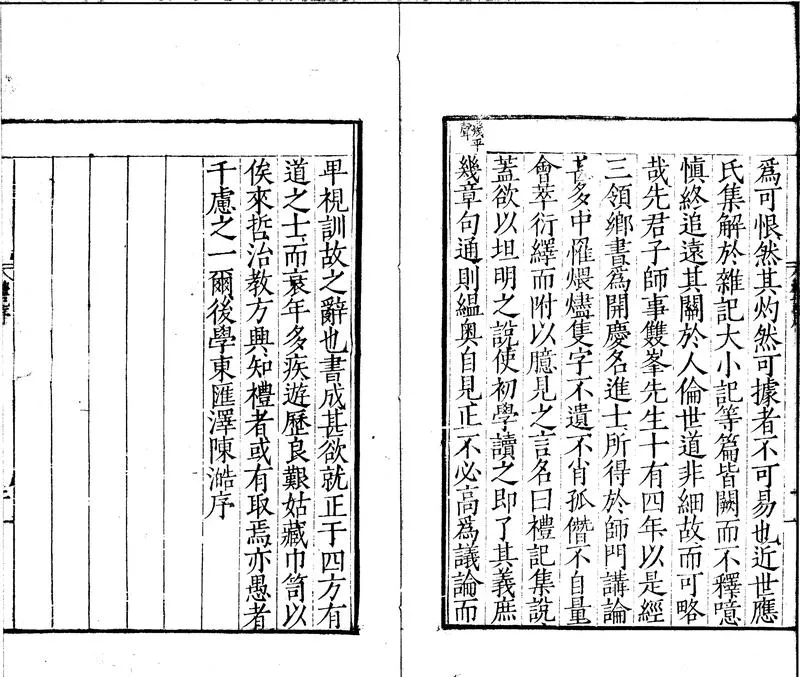 爲可恨然其灼然可據者不可易也近世應
氏集解於雜記大小記等篇皆闕而不釋噫
愼終追遠其關於人倫世道非細故而可略
哉先君子師事雙峯先生十有四年以是經
三領鄉書爲開慶名進士所得於師門講論
甚多中罹煨燼隻字不遺不肖孤僭不自量
會萃衍繹而附以臆見之言名曰禮記集說
蓋欲以坦明之說使初學讀之即了其義庶
幾章句通則縕奥自見正不必高爲議論而
卑視訓故之辭也書成甚欲就正于四方有
道之士而衰年多疾遊歷良艱姑藏巾笥以
俟來哲治教方興知禮者或有取焉亦愚者
千慮之一爾後學東匯澤陳澔序